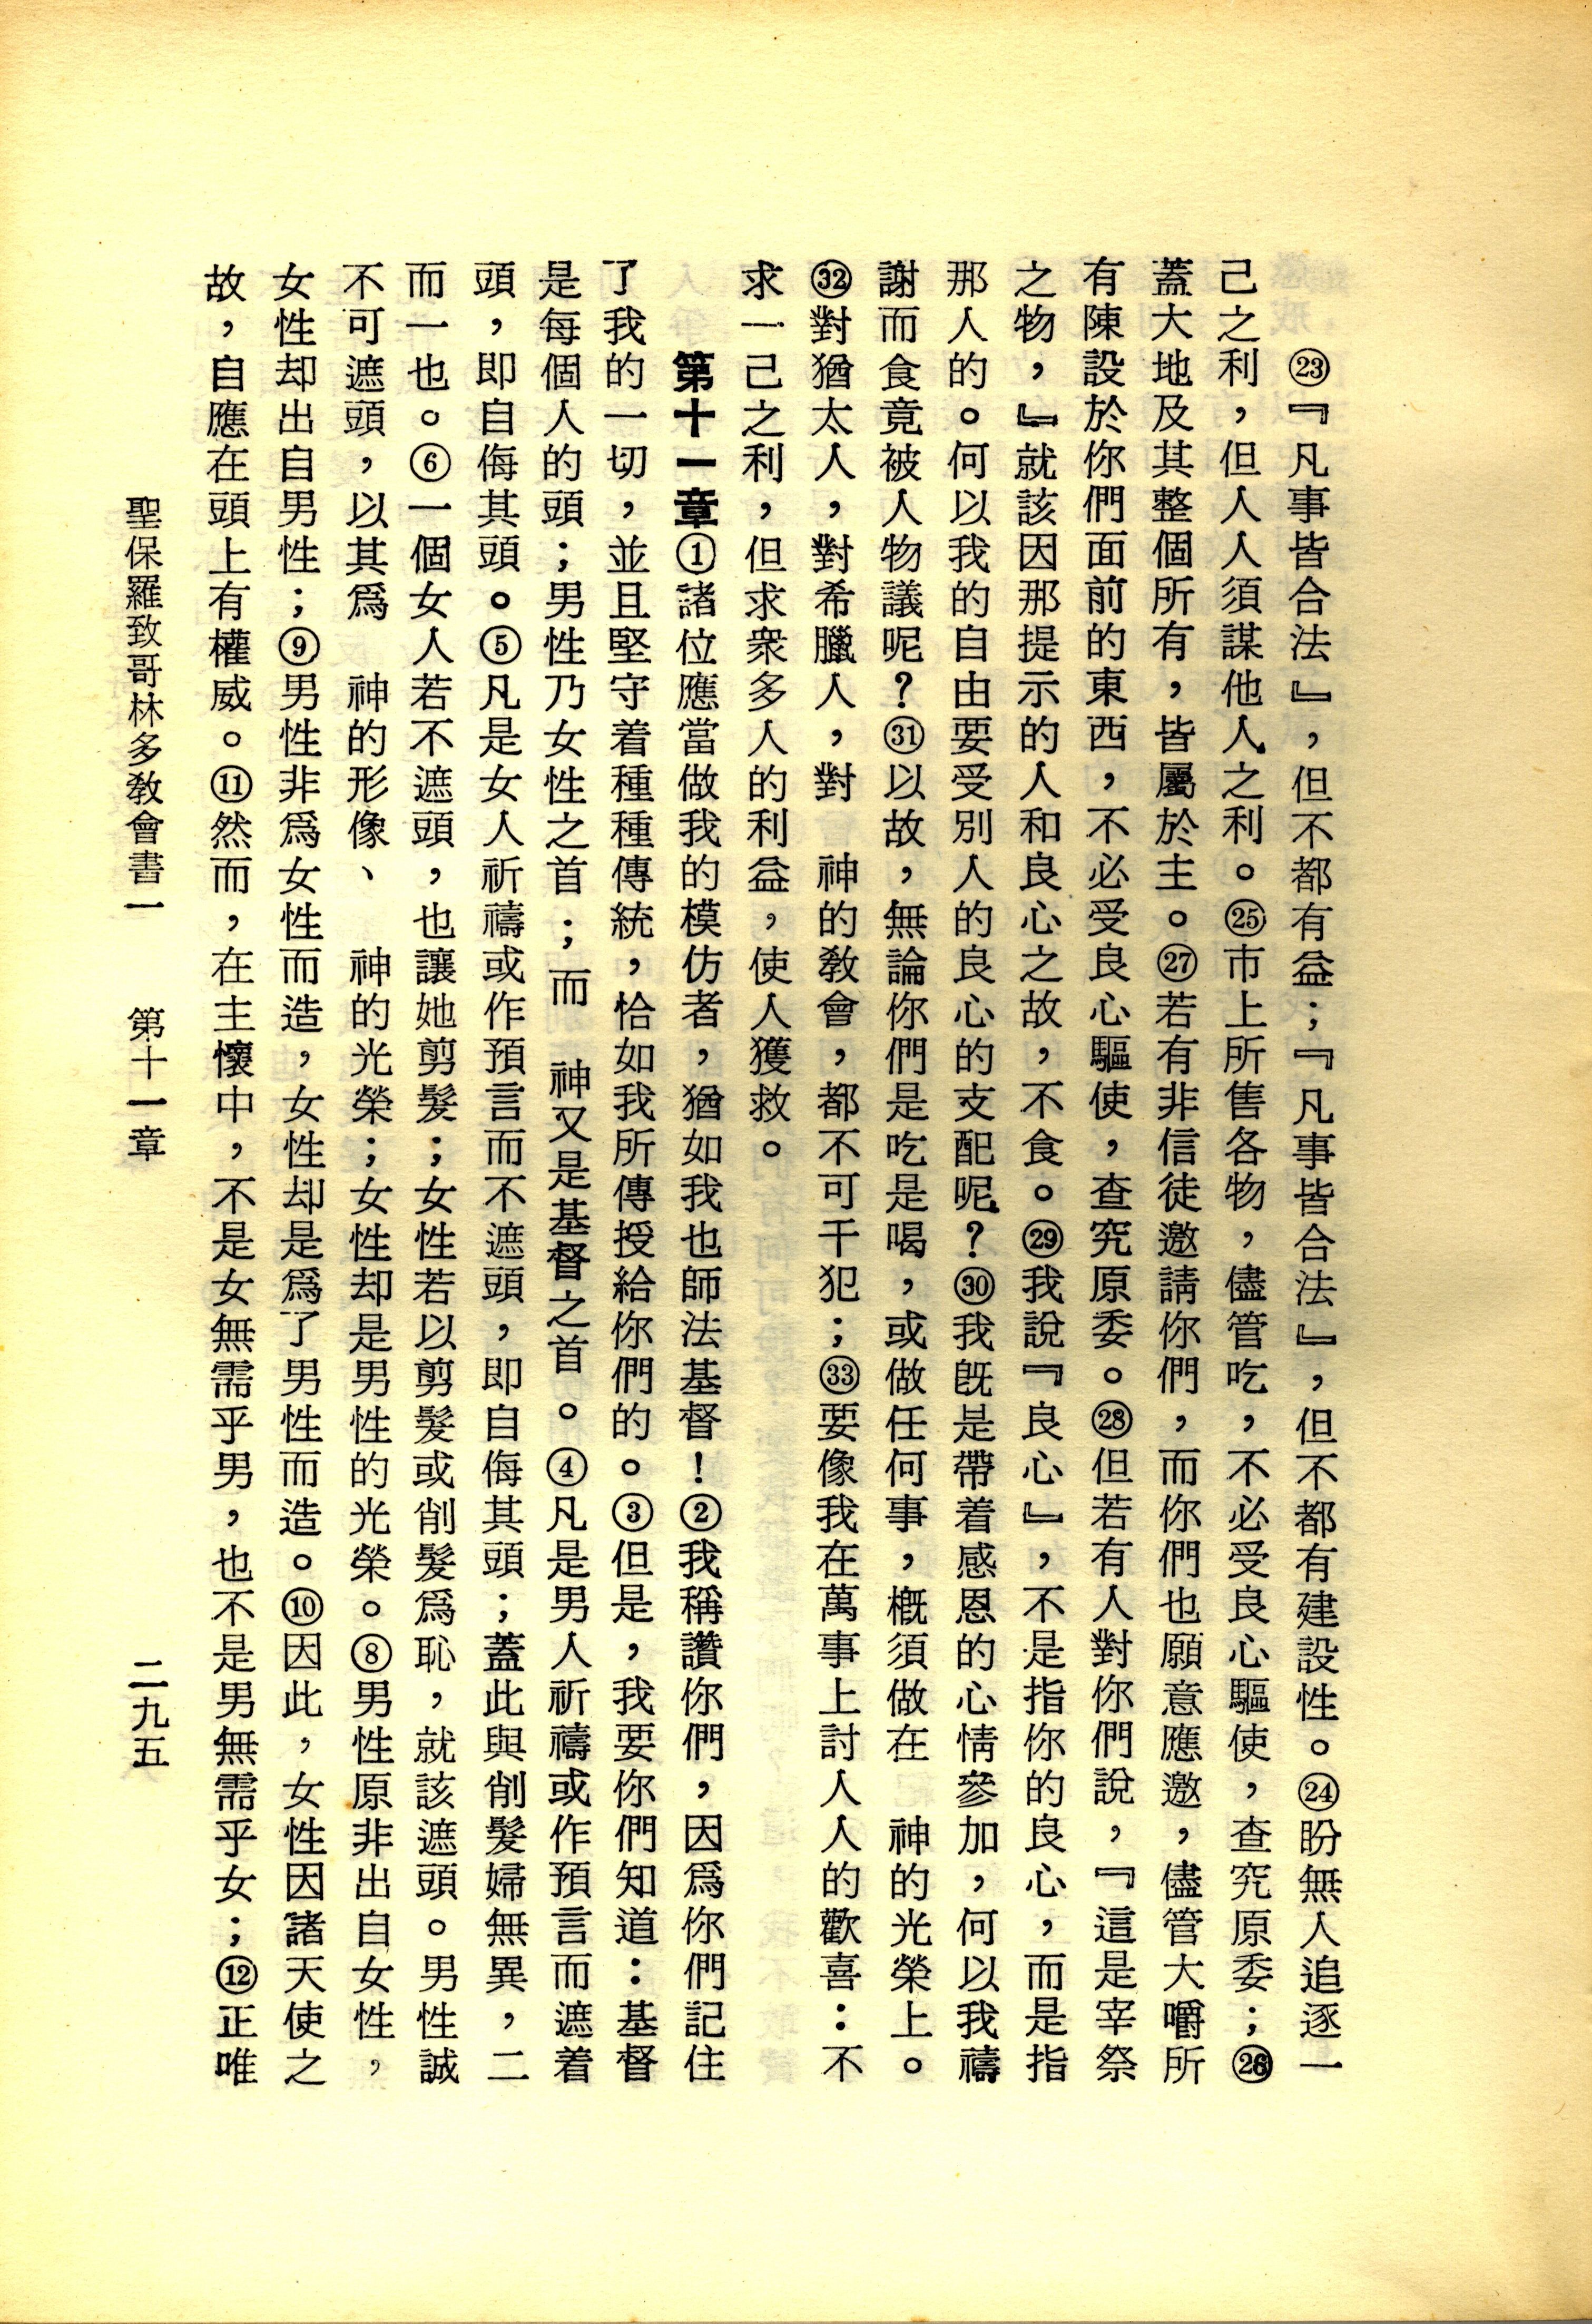 ㉓『凡事皆合法』，但不都有益；『凡事皆合法』，但不都有建設性。㉔盼無人追逐一
己之利，但人人須謀他人之利。㉕市上所售各物，儘管吃，不必受良心驅使，查究原委；㉖
蓋大地及其整個所有，皆屬於主。㉗若有非信徒邀請你們，而你們也願意應邀，儘管大嚼所
有陳設於你們面前的東西，不必受良心驅使，查究原委。㉘但若有人對你們說，『這是宰祭
之物，』就該因那提示的人和良心之故，不食。㉙我說『良心』，不是指你的良心，而是指
那人的。何以我的自由要受別人的良心的支配呢？㉚我旣是帶着感恩的心情參加，何以我禱
謝而食竟被人物議呢？㉛以故，無論你們是吃是喝，或做任何事，槪須做在　神的光榮上。
㉜對猶太人，對希臘人，對　神的敎會，都不可干犯；㉝要像我在萬事上討人人的歡喜：不
求一己之利，但求衆多人的利益，使人獲救。
第十一章①諸位應當做我的模仿者，猶如我也師法基督！②我稱讚你們，因爲你們記住
了我的一切，並且堅守着種種傳統，恰如我所傳授給你們的。③但是，我要你們知道：基督
是每個人的頭；男性乃女性之首；而　神又是基督之首。④凡是男人祈禱或作預言而遮着
頭，即自侮其頭。⑤凡是女人祈禱或作預言而不遮頭，即自侮其頭；蓋此與削髮婦無異，二
而一也。⑥一個女人若不遮頭，也讓她剪髮；女性若以剪髮或削髮爲恥，就該遮頭。男性誠
不可遮頭，以其爲　神的形像、　神的光榮；女性却是男性的光榮。⑧男性原非出自女性，
女性却出自男性；⑨男性非爲女性而造，女性却是爲了男性而造。⑩因此，女性因諸天使之
故，自應在頭上有權威。⑪然而，在主懷中，不是女無需乎男，也不是男無需乎女；⑫正唯
聖保羅致哥林多敎會書一　第十一章　二九五